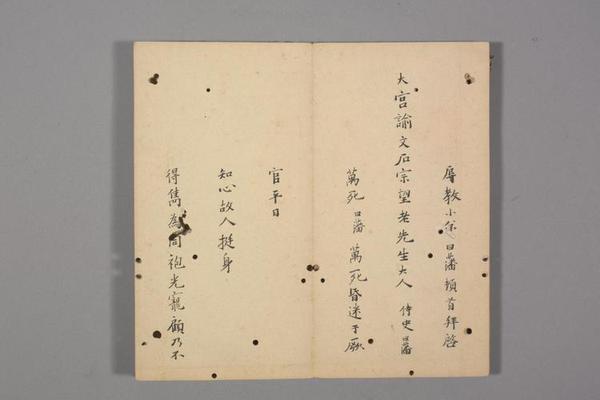 辱教小侄曰藩頓首拜啓
大宫諭文石宗望老先生大人 侍史曰藩
萬死曰藩萬死昏迷于厥
官平日
知心故人挺身
得雋為同袍光寵顧乃不